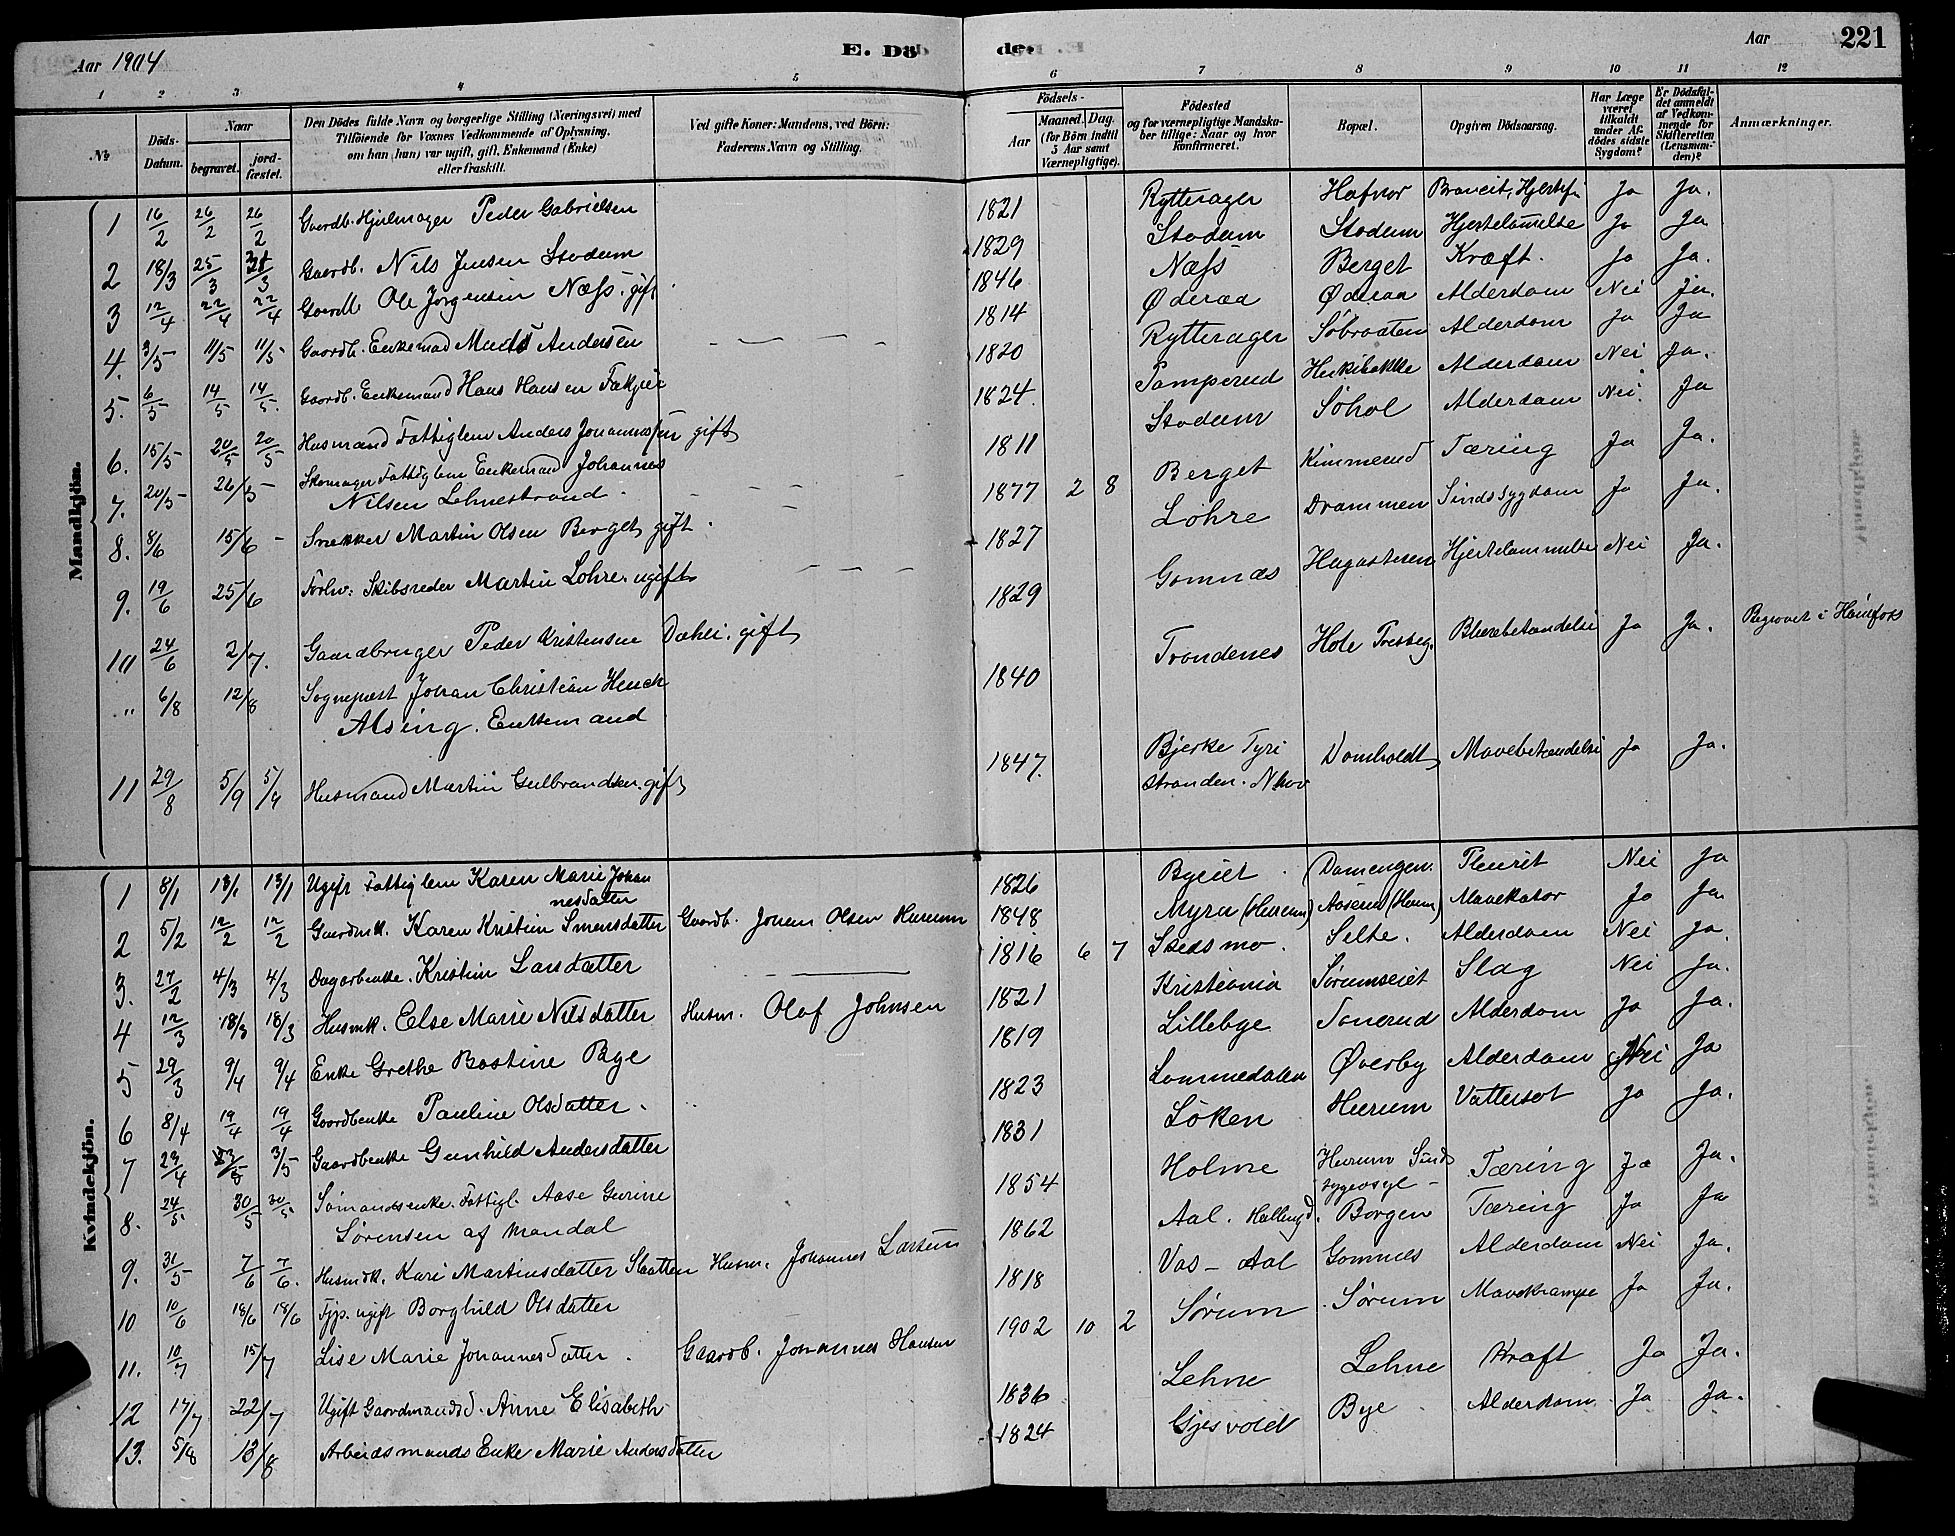 Aar 1904 E. Döde. Aar 221
1 2 3 4 5 6 7 8 9 10 11 12
№ Döds-Datum. Naar begravet. jordfæstet. Den Dödes fulde Navn og borgerlige Stilling (Næringsvei) med Tilföiende for Voxnes Vedkommende af Oplysning, om han (hun) var ugift, gift, Enkemand (Enke) eller fraskilt. Ved gifte Koner: Mandens, ved Börn: Faderens Navn og Stilling. Födsels- Aar Maaned. Dag. (for Börn indtil 5 Aar samt Værnepligtige). Födested og for værnepligtige Mandskaber tillige: Naar og hvor konfirmeret. Bopæl. Opgiven Dödsaarsag. Har Læge været tilkaldt under Afdödes sidste Sygdom? Er Dödsfaldet anmeldt af Vedkommende for Skifteretten (Lensmanden)? Anmærkninger.
Mandkjön.
1 16/2 26/2 26/2 Gaardb. Hjulmager Peder Gabrielsen 1821 Rytterager Hafnor Ja Ja.
2 18/3 25/3 Gaardb. Nils Jensen Stodum 1829 Stodum Stodum Hjertelammelse Ja Ja
3 12/4 22/4 22/4 Gaardb. Ole Jørgensen Næss. gift 1846 Næss Berget Kræft. Ja Ja.
4. 3/5 11/5 11/5 Gaardb. Enkemand Mads Andersen 1814 Øderaa Øderaa Alderdom Nei Ja.
5. 6/5 14/5 14/5. Gaardb. Enkemand Hans Hansen 1820 Rytterager Søbraaten Alderdom Ja Ja
6. 15/5 20/5 20/5 Husmand Fattiglem Anders Johannessen gift 1824. Pamperud Alderdom Nei Ja.
7. 20/5 26/5 Skomager Fattiglem Enkemand Johannes
Nilsen Lehnestrand. 1811 Stodum Søhol Alderdom Nei. Ja
8. 8/6 15/6 Snekker Martin Olsen Berget gift. 1877 2 8 Berget Kimmerud Tæring Ja Ja.
9. 19/6 25/6 Forhv: Skibsreder Martin Løhre. ugift 1827 Løhre Drammen Sindssygdom Ja Ja.
10 24/6 2/7. Gaardbruger Peder Kristensen Dæhli. gift 1829 Gomnæs Hagasteren Hjertelammelse Nei Ja.
" 6/8 12/8 Sogneprest Johan Christian Heuch
Alsing. Enkemand 1840 Trondenes Hole Presteg. Blærebetændelse Ja Ja. Begravet i Hønefoss
11 29/8 5/9 5/9 Husmand Martin Gulbrandsen. gift 1847. Bjerke Tyri
stranden. N hov Domholdt Mavebetændelse Ja Ja.
Kvindekjön.
1 8/1 13/1 13/1 Ugift Fattiglem Karen Marie Johan
nesdatter 1826 Byeiet Damengen. Pleurit Nei Ja
2 5/2 12/2 12/2 Gaardmk. Karen Kristine Simensdatter Gaardb. Johan Olsen Hurum 1848 Myra (Hurum) Aaserud (Hurum) Mavekatar Ja Ja.
3. 27/2 4/3 4/3 Kristine Larsdatter 1816 6 7 Skedsmo. Selte. Alderdom Nei Ja.
4 12/3 18/3 18/3 Husmk. Else Marie Nilsdatter Husm. Olaf Johnsen 1821 Kristiania Sørumseiet Slag Nei Ja.
5 29/3 9/4 9/4 Enke Grethe Bastine Bye 1819 Lillebye Tanerud Alderdom Ja Ja.
6 8/4 19/4 19/4 Gaardbenke Pauline Olsdatter. 1823 Lommedalen Øverby Alderdom Nei Ja
7 29/4 3/5 Gaardbenke Gunhild Andersdatter 1831 Løken Hurum Vattersot Ja Ja.
8. 24/5 30/5 30/5 Sømandsenke. Fattigl. Aase Gurine
Sørensen af Mandal 1854 Holme Hurum Sind
sygeasyl - Tæring Ja Ja.
9. 31/5 7/6 7/6. Husmdk. Kari Martinsdatter Slaatten Husm. Johannes Larsen 1862 Aal. Hallingd. Borgen Tæring Ja Ja
10 10/6 18/6 18/6 Tjp. ugift Borghild Olsdatter 1818 Vas - Aal Gomnæs Alderdom Nei Ja.
11. 10/7 15/7 Lise Marie Johannesdatter. Gaardb. Johannes Hansen 1902 10 2 Sørum Sørum Mavekrampe Ja Ja.
12 17/7 22/7 Ugift Gaardmandsd. Anne Elisabeth 1836 Lehne Lehne Kræft Ja Ja.
13. 5/8 13/8 Arbeidsmands Enke Marie Andersdatter 1824 Gjesvold Bye Alderdom Ja Ja.